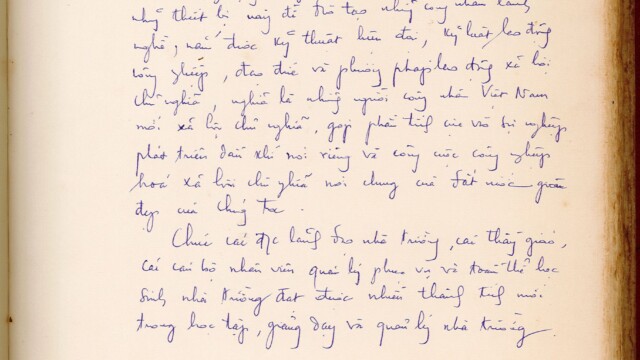 những thiết bị này để đào tạo những công nhân lành
nghề, nắm được kỹ thuật hiện đại, kỷ luật lao động
công nghiệp, đạo đức và phương pháp lao động xã hội
chủ nghĩa, nghĩa là những người công nhân Việt Nam
mới xã hội chủ nghĩa, góp phần tích cực vào sự nghiệp
phát triển dầu khí nói riêng và công cuộc công nghiệp
hoá xã hội chủ nghĩa nói chung của đất nước giàu
đẹp của chúng ta.
Chúc các đ/c lãnh đạo nhà trường, các thầy giáo,
các cán bộ nhân viên quản lý phục vụ và toàn thể học
sinh nhà trường đạt được nhiều thành tích mới
trong học tập, giảng dạy và quản lý nhà trường.